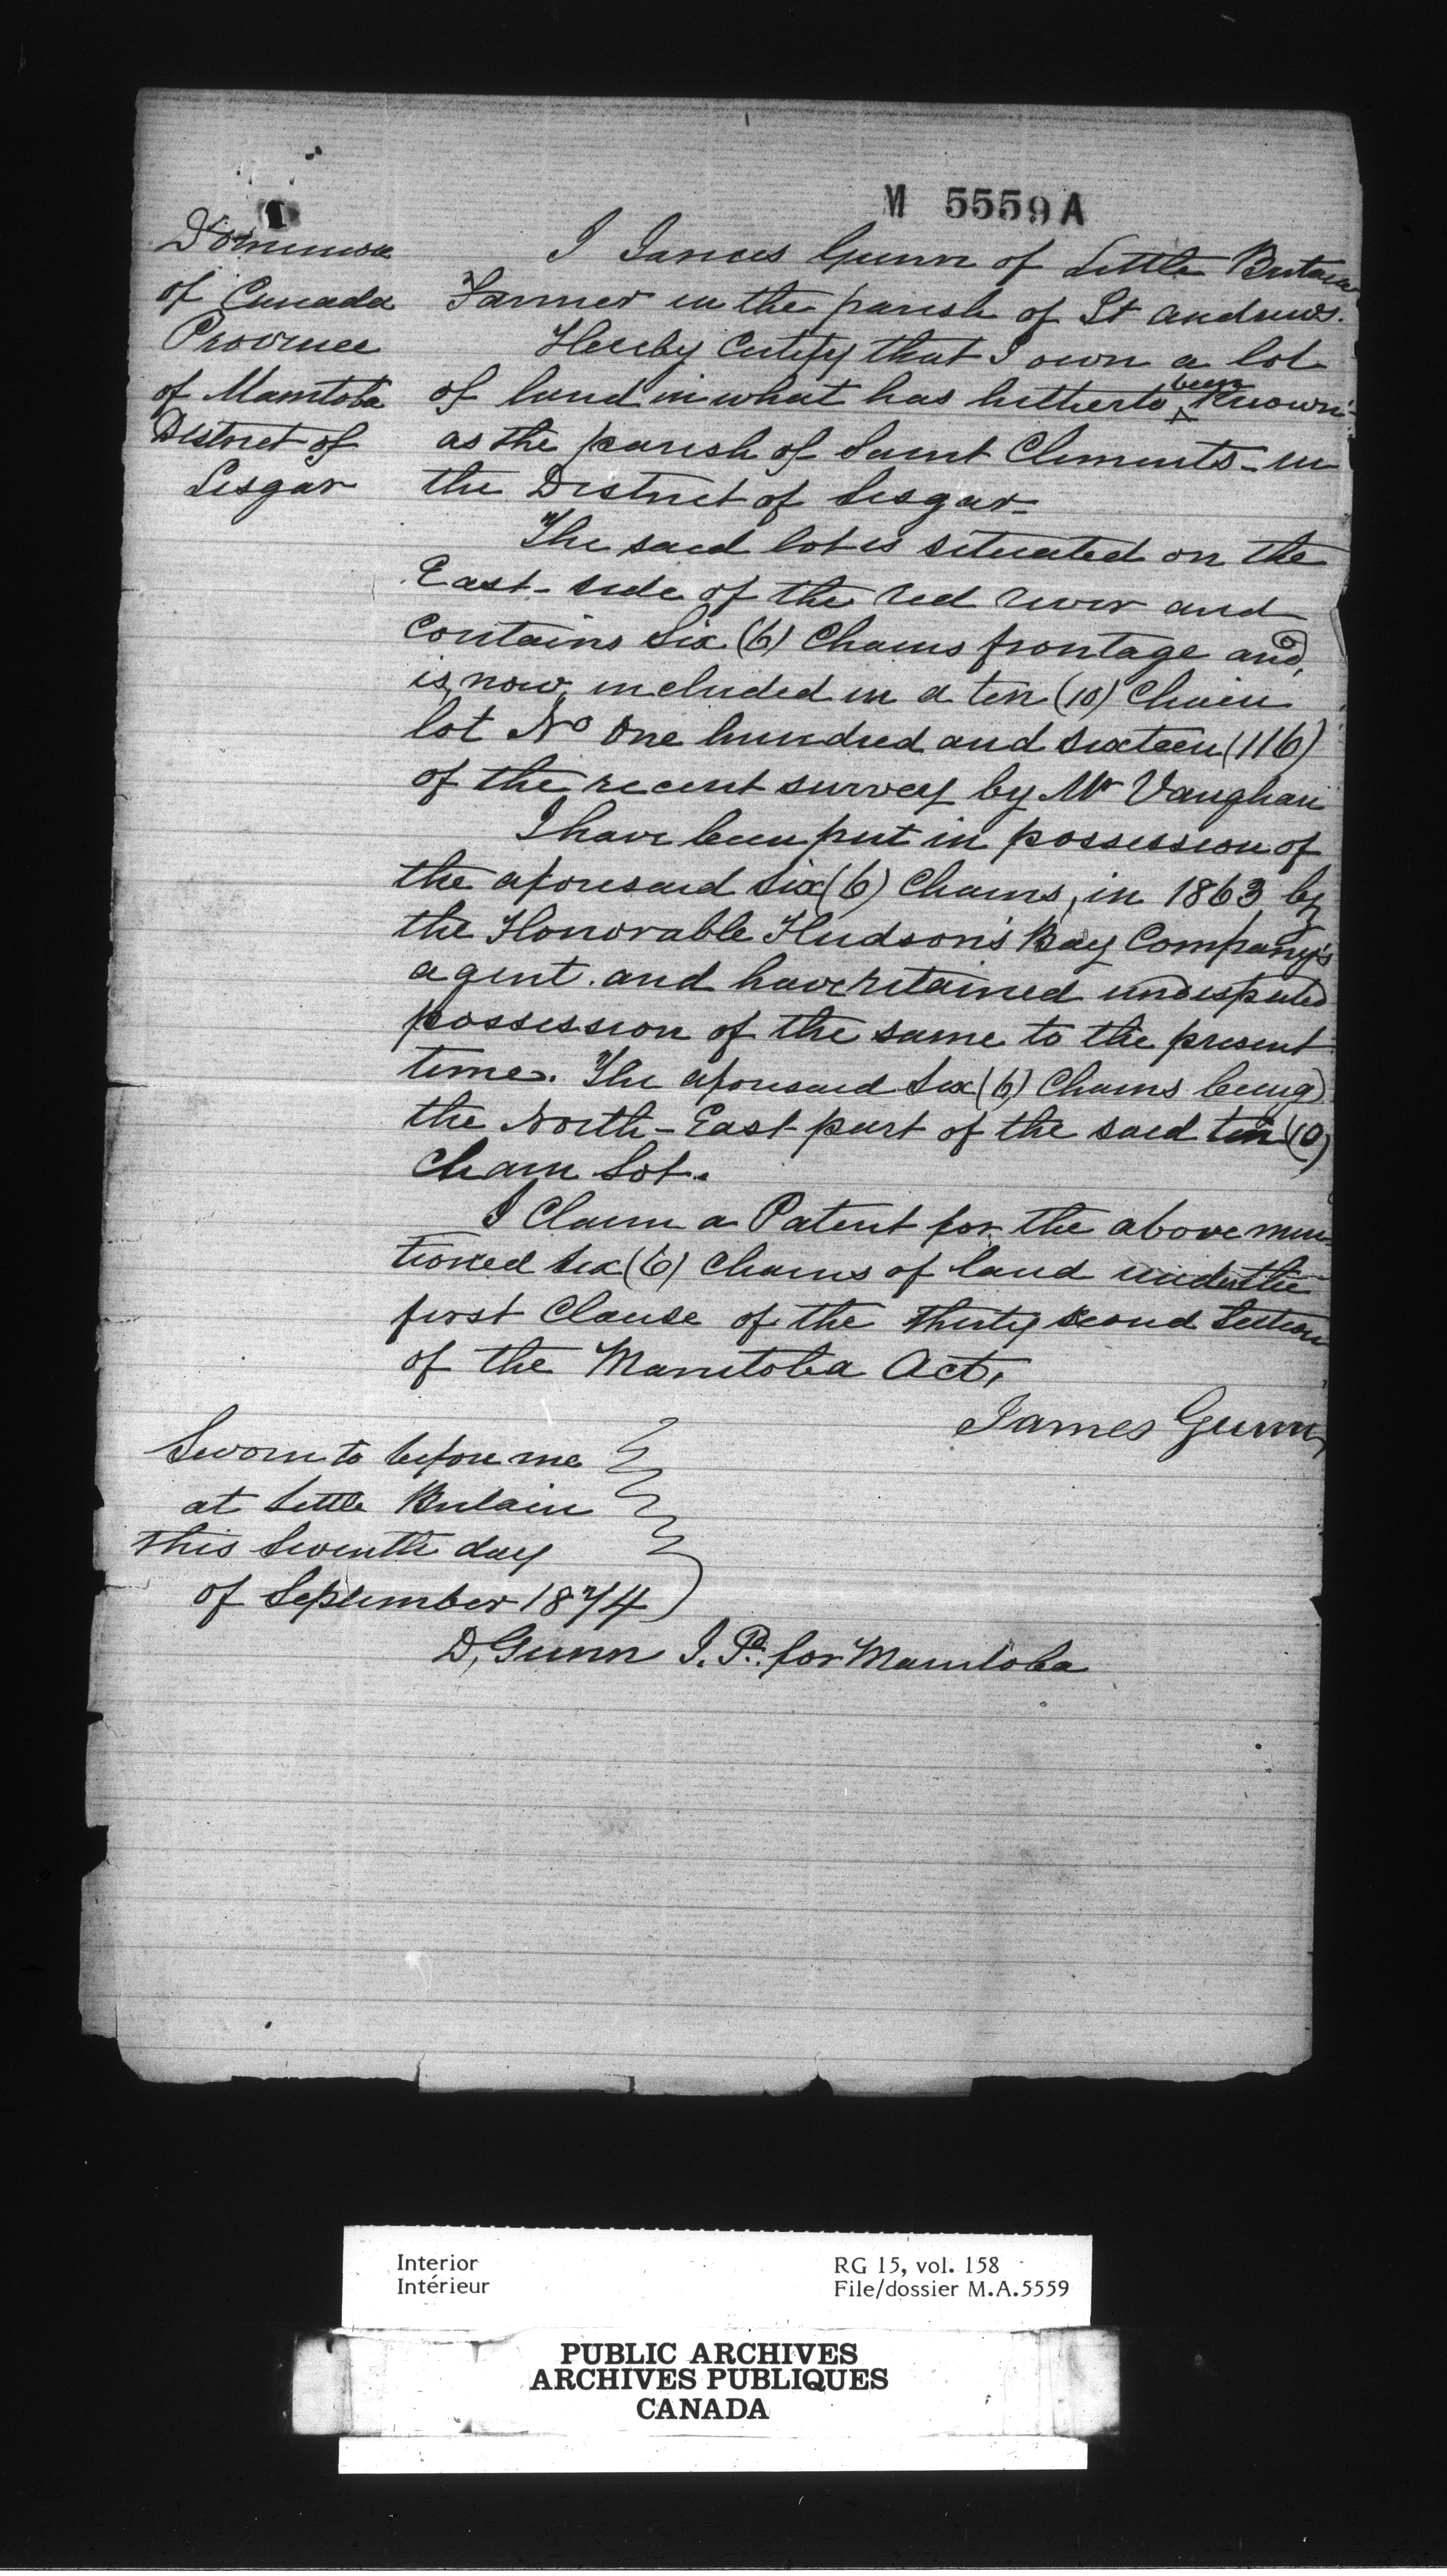 M 5559 A
Dominion
of Canada
Province
of Manitoba
District of
Lisgar
I James Gunn of Little Britain
Farmer in the parish of St Andrews.
Hereby Certify that I own a lot
of land in what has hitherto been Known
as the parish of Saint Clements - in
the District of Lisgar -
The said lot is situated on the
East - side of the red river and
Contains Six (6) Chains frontage and
is now included in a ten (10) Chain
lot No One hundred and sixteen (116)
of the recent survey by Mr Vaughan
I have been put in possession of
the aforesaid Six (6) Chains, in 1863 by
the Honorable Hudson's Bay Company's
agent. and have retained undisputed
possession of the same to the present
time. The aforesaid Six (6) Chains being
the North - East part of the said ten (10)
Chain Lot.
I Claim a Patent for the above men-
tioned Six (6) Chains of land under the
first Clause of the Thirty second Section
of the Manitoba Act,
James Gunn
Sworn to before me
at Little Britain
this Seventh day
of September 1874
D, Gunn J. P. for Manitoba
Interior
Intérieur
RG 15, vol. 158
File/dossier M.A.5559
PUBLIC ARCHIVES
ARCHIVES PUBLIQUES
CANADA